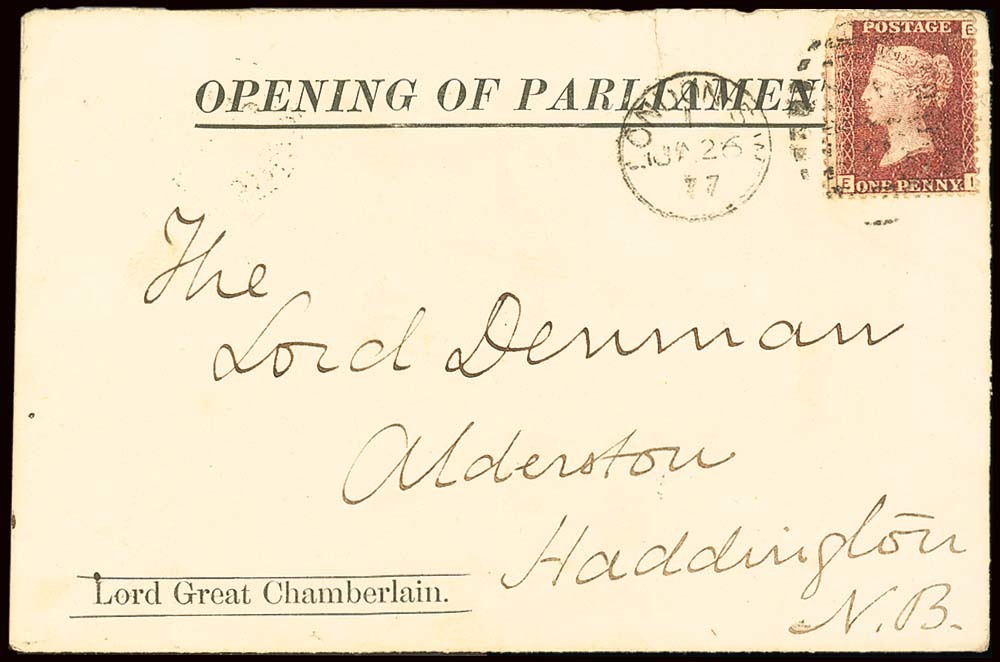 OPENING OF PARLIAMEN
LONDON S.W
1
JA 26
77
POSTAGE
E I
ONE PENNY
The
Lord Denman
Alderston
Haddington
N.B.
Lord Great Chamberlain.